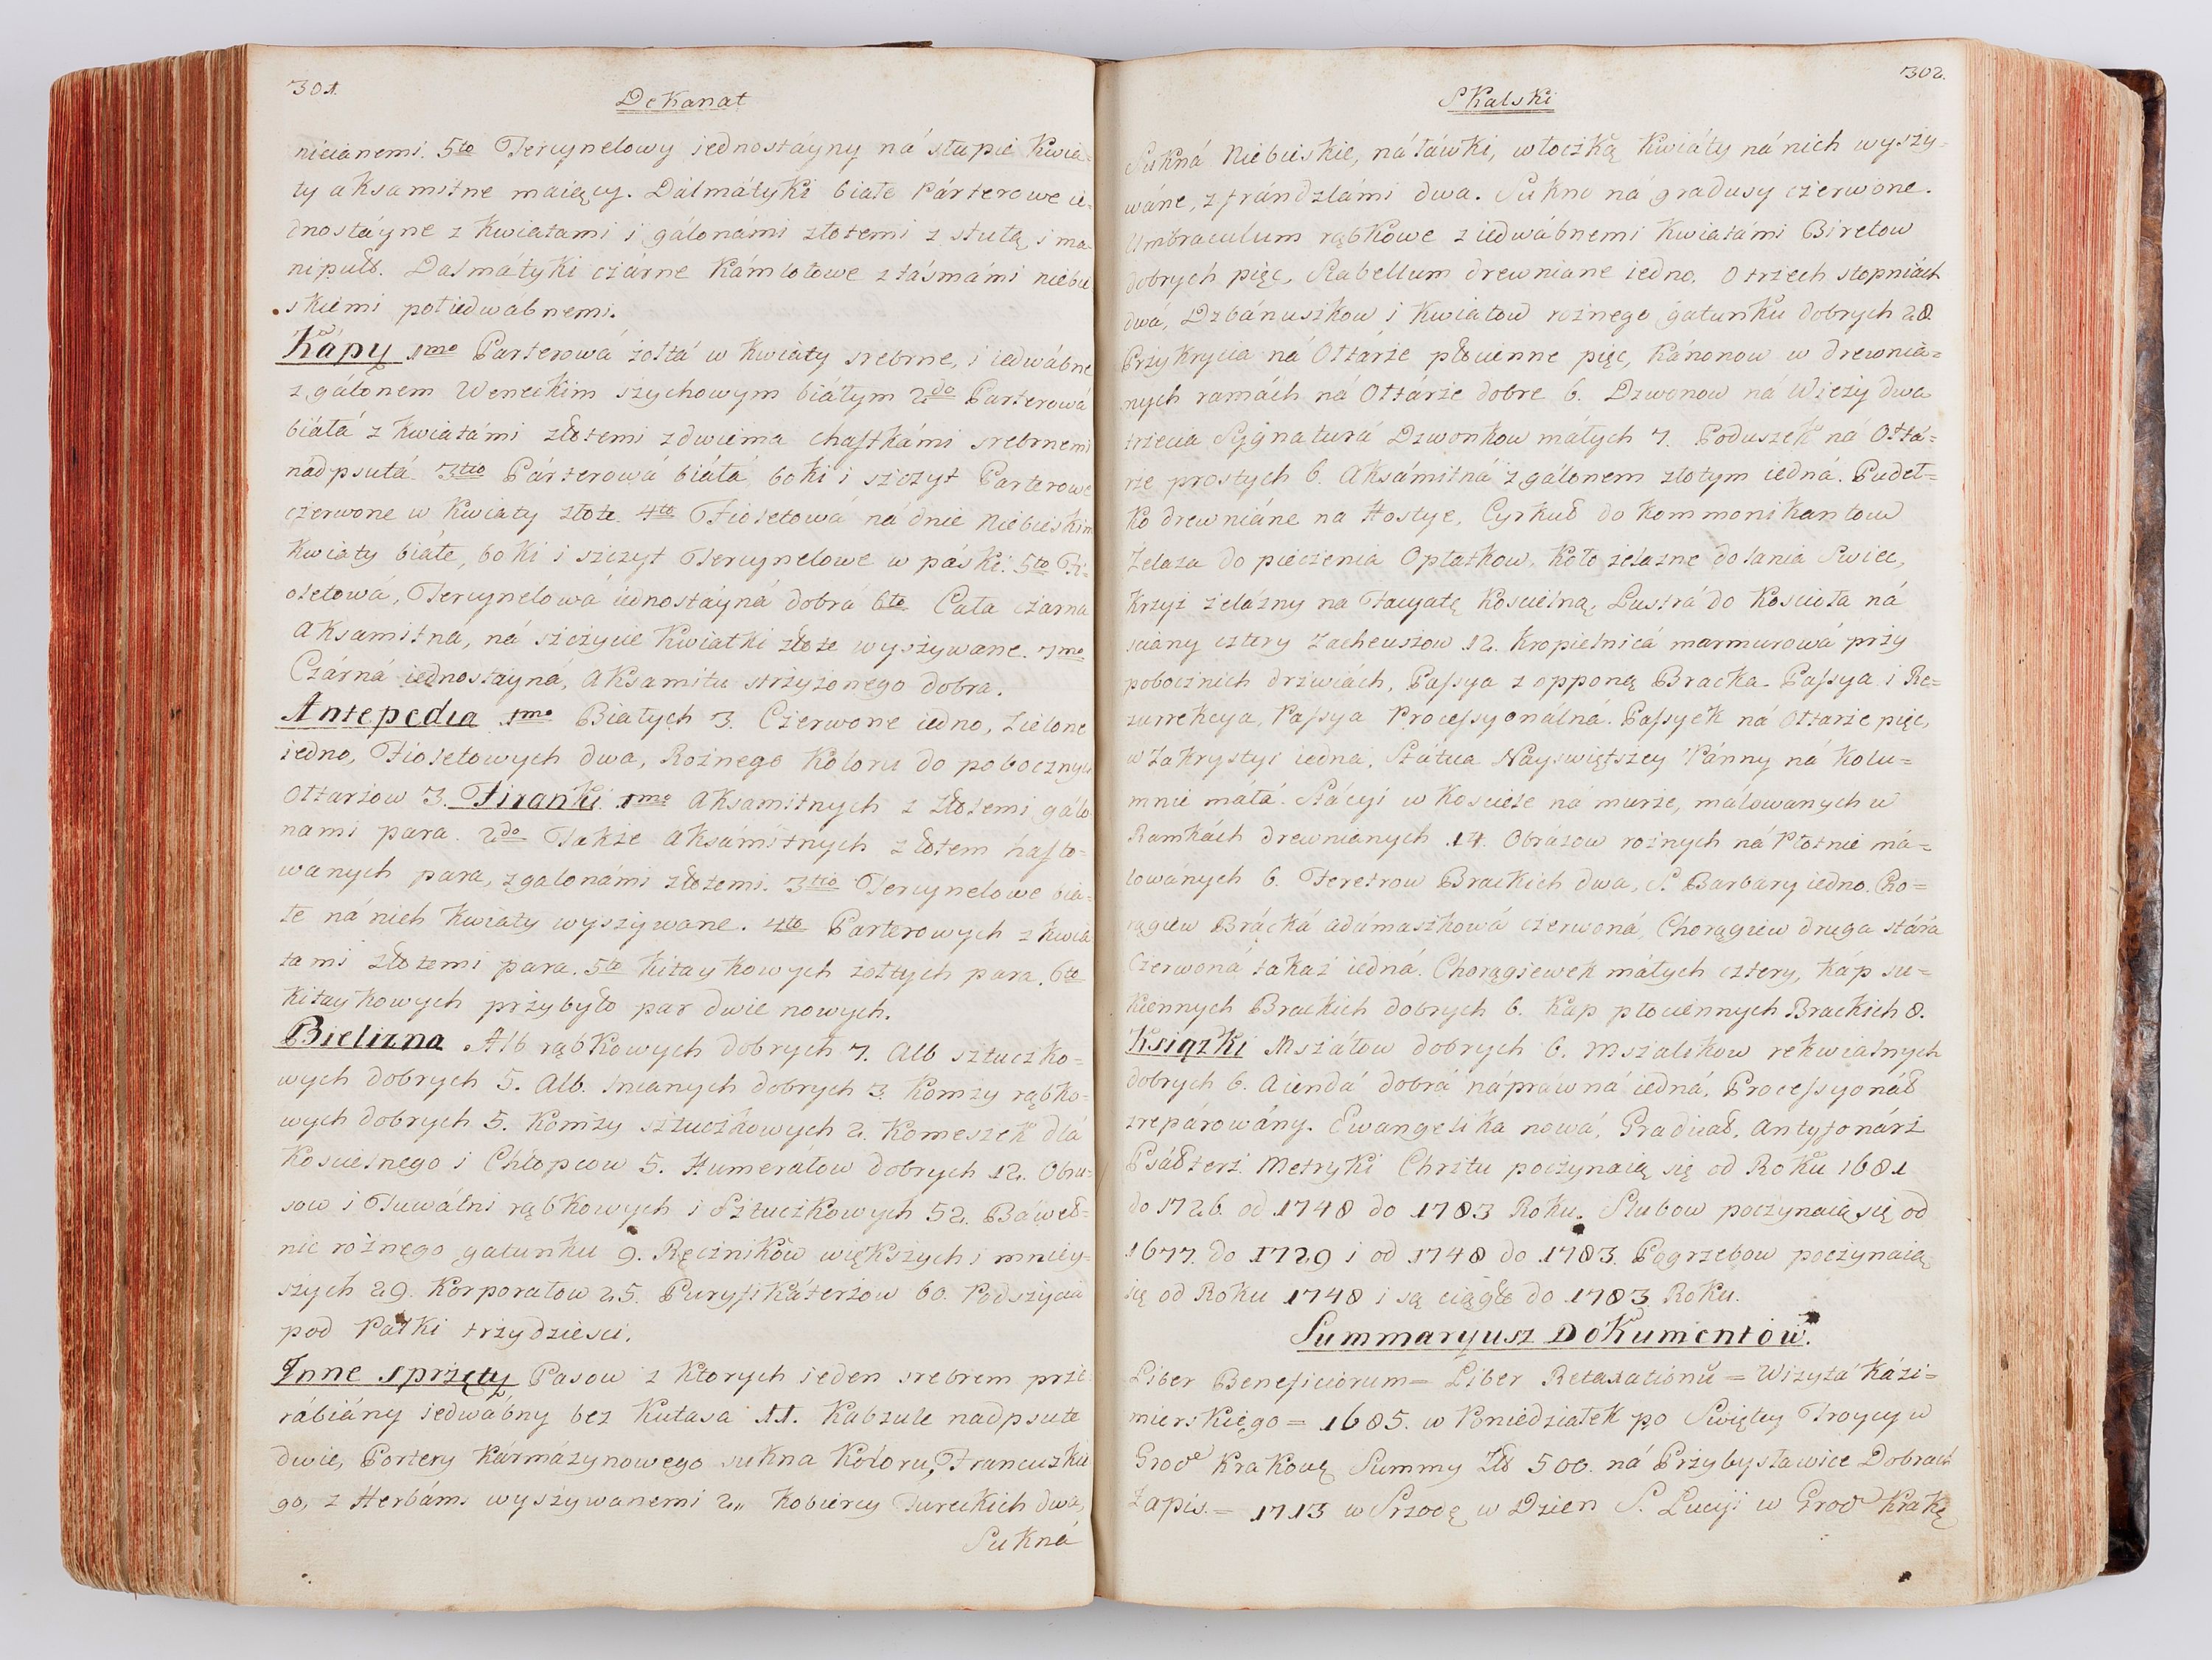 301.
Dekanat
nicianemi. 5to Tercynelowy iednostáyny ná słupie kwia=
ty aksamitne maiący. Dálmátyki białe Párterowe ie=
dnostáyne z kwiatami i gálonámi złotemi z stułą i ma=
nipuł. Dalmátyki czárne kámlotowe z táśmámi niebie
skiemi połiedwabnemi.
Kápy 1mo Parterowá żołtá w kwiaty srebrne, i iedwábne
z gálonem Weneckim szychowym białym 2do Parterowá
białá z kwiatámi złotemi z dwiema chastkámi srebrnemi
nádpsutá. 3tio Párterowá białá boki i szczyt Parterowe
czerwone w kwiaty złote. 4to Fioletowá ná dnie niebieskim
kwiaty białe, boki i szczyt Tercynelowe w páski. 5to Fi=
oletowá, Tercynelowá iednostayná dobrá 6to Cała czarna
Aksamitna, ná szczycie kwiatki złote wyszywane. 7mo
Czárná iednostayná, Aksamitu strzyżonego dobra.
Antepedia 1mo Białych 3. Czerwone iedno, zielone
iedno, Fioletowych dwa, Rożnego koloru do pobocznych
Ołtarzow 3. Firanki. 1mo Aksamitnych z złotemi gálo
nami para. 2do Także Aksámitnych złotem háfto=
wanych para, z galonámi złotemi. 3tio Tercynelowe bia=
łe ná nich kwiaty wyszywane. 4to Parterowych z kwia
tami złotemi para. 5to kitaykowych żołtych para. 6to
kitaykowych przybyło par dwie nowych.
Bielizna Alb rąbkowych dobrych 7. Alb sztuczko=
wych dobrych 5. Alb. lnianych dobrych 3. Komży rąbko=
wych dobrych 5. Komży sztuczkowych 2. Komeszek dlá
kościelnego i Chłopcow 5. Humerałow dobrych 12. Obru=
sow i Tuwálni rąbkowych i Sztuczkowych 52. Báweł=
nic rożnego gatunku 9. Ręcznikow większych i mniey=
szych 29. Korporałow 25. Puryfikáterzow 60. Podszycia
pod Pálki trzydzieści.
Inne sprzęty Pasow z ktorych ieden srebrem prze
rábiány iedwábny bez kutasa 11. Kabzule nadpsute
dwie, Portery kármázynowego sukna koloru, Francuzkie
go, z Herbámi wyszywanemi 2„ kobiercy Tureckich dwa,
Sukná
302.
Skalski
Sukná Niebieskie, ná łáwki, włoczką kwiáty ná nich wyszy=
wáne, z frándzlámi dwa. Sukno ná gradusy czerwone.
Umbraculum rąbkowe z iedwábnemi kwiatámi Biretow
dobrych pięć, Skabellum drewniane iedno. O trzech stopniách
dwá, Dzbánuszkow i kwiatow rożnego gátunku dobrych 28.
Przykrycia ná Ołtarze płocienne pięć, Kánonow w drewnia=
nych ramách ná Ołtárze dobre 6. Dzwonow ná Wieży dwa
trzecia Sygnaturá Dzwonkow máłych 7. Poduszek ná Ołtá=
rze prostych 6. Aksámitná z gálonem złotym iedná. Pudeł=
ko drewniáne na Hostye, Cyrkuł do kommonikantow
Żelaza do pieczenia Opłatkow, koło żelazne do lania Swiec,
krzyż żelázny na Facyatę kościelną, Lustrá do kościoła ná
sciany cztery Zacheuszow 12. Kropielnicá marmurowá przy
pobocznich drzwiách, Passya z opponą Bracka. Passya i Re=
zurrekcya, Passya Processyonálná. Passyek ná Ołtarze pięć,
w Zakrystyi iedna, Státua Nayświętszey Pánny ná kolu=
mnie małá. Stácyi w kościele ná murze, málowanych w
Ramkách drewnianych 14. Obrázow rożnych ná Płotnie má=
lowánych 6. Feretrow Brackich dwa, S. Barbary iedno. Cho=
rągiew Bráckà adámaszkowá czerwoná, Chorągiew druga stárá
Czerwoná takaż iedná. Chorągiewek máłych cztery, káp su=
kiennych Brackich dobrych 6. Kap płociennych Brackich 8.
Książki Mszałow dobrych 6. Mszalikow rekwialnych
dobrych 6. Aiendá dobrá náprawná iedná, Processyonáł
zrepárowány. Ewangelika nowá, Graduał, Antyfonárz
Psáłterz. Metryki Chrztu poczynaią się od Roku 1681
do 1726. od 1748 do 1783 Roku. Slubow poczynaią się od
1677. do 1729 i od 1748 do 1783. Pogrzebow poczynaią
się od Roku 1748 i są ciągło do 1783 Roku.
Summaryusz Dokumentow.
Liber Beneficiorum = Liber Retaxationū = Wizytá Kázi=
mierskiego = 1685. w Poniedziałek po Swiętey Troycy w
Grod krakowę Summy Zło 500. ná Przybysławice Dobrach
Zapis. = 1713 w Srzodę w Dzien S. Lucyi w Grod krakę